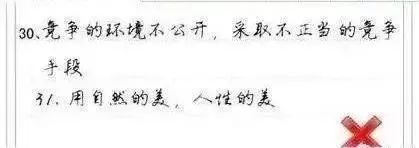 30、竞争的环境不公开，采取不正当的竞争
手段
31、用自然的美，人性的美